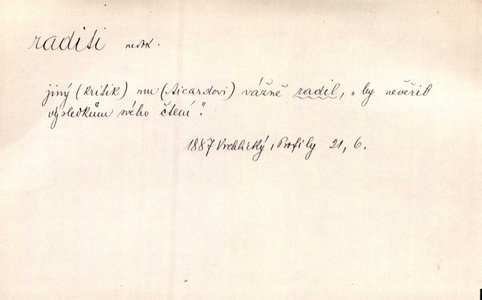 raditi nedok.
jiný (kritik) mu (Aicardovi) vážně radil, „by nevěřil
výsledkům svého čtení“.
1887 Vrchlický, Profily 21, 6.